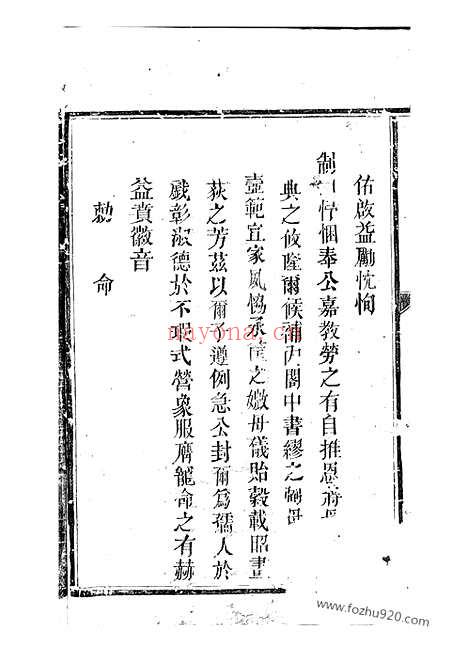 佑啟益勵忱恂
制曰恪恭奉公嘉教勞之有自推恩
典之攸隆爾候補內閣中書繆之母
壼範宜家夙協承筐之媺母儀貽穀載昭畫
荻之芳茲以爾子遵例急公封爾爲孺人於
戲彰淑德於不瑕式瑩象服膺寵命之有赫
益賁徽音
勅命
nayona.cn
www.fozhu920.com